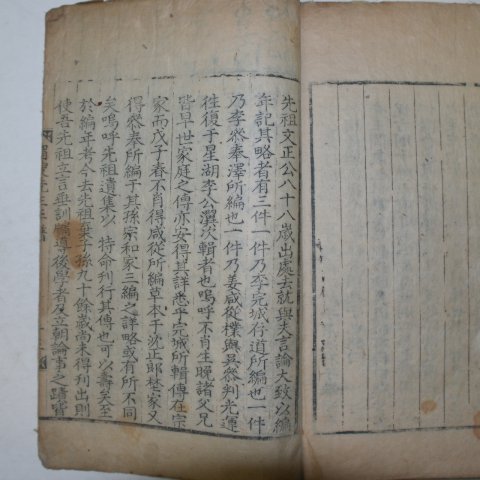 先祖文正公八十八歲出處去就與夫言論大致以編
年記其畧者有三件一件乃李完城行道所編也一件
乃李參奉澤所編也一件乃姜咸從樸與吳參判光運
往復于星湖李公瀷次輯者也嗚呼不肖生晩諸父兄
皆早世家庭之傳亦安得其詳悉乎完城所輯傳在宗
家而戊子春不肖得咸從所編草本于沈正郞埜家又
得參奉所編于其孫宗和家三編之詳略或有所不同
矣嗚呼先祖遺集以 特命刋行其傳也可以壽矣至
於編正考今去先祖棄子孫九十餘歲尙未得刋出則
使吾先祖立言垂訓 導後學者及立朝論事之蹟皆